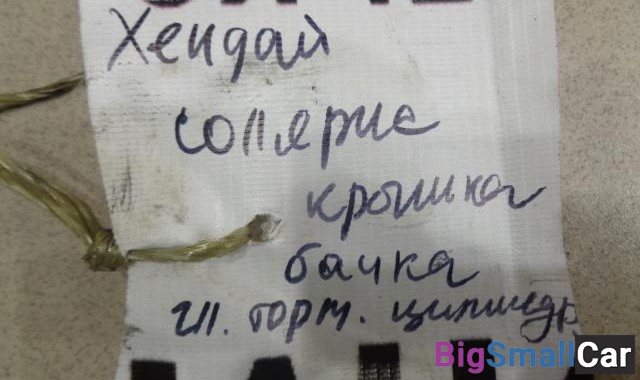 Хендай
солярис
крышка
бачка
гл. торм. цилиндр
BigSmallCar